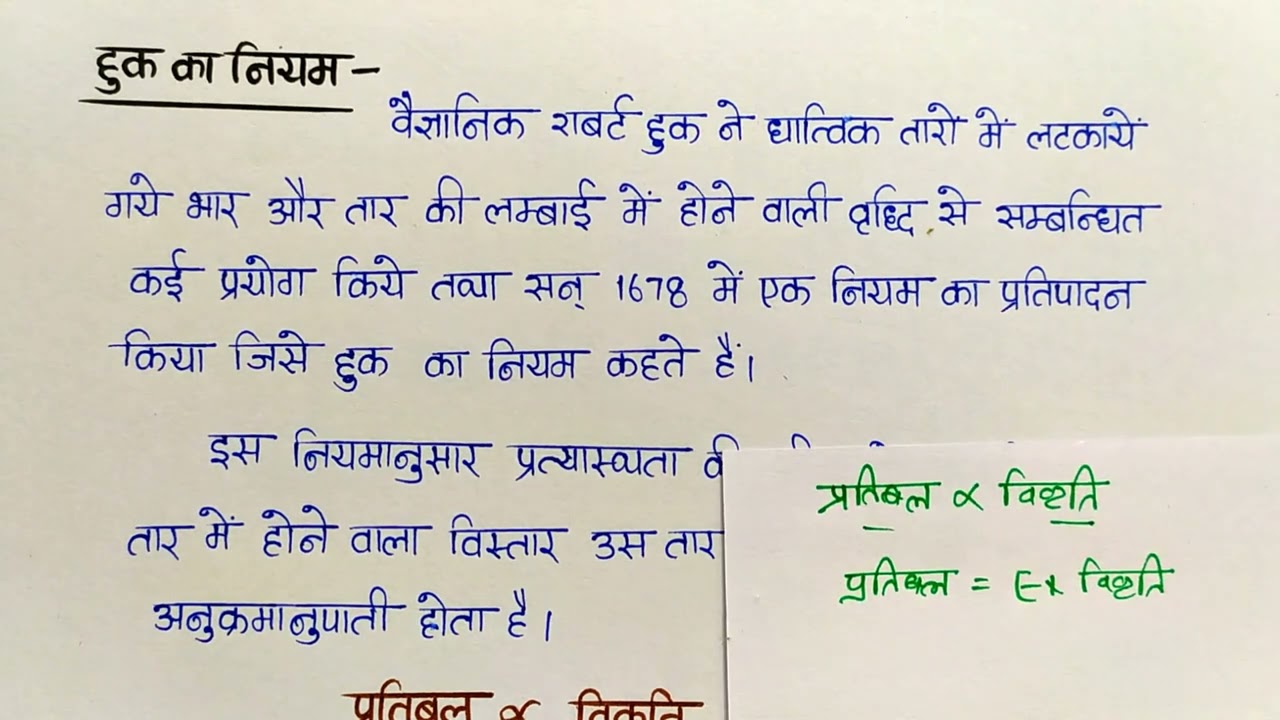 हुक का नियम -
वैज्ञानिक राबर्ट हुक ने धात्विक तारों में लटकायें
गये भार और तार की लम्बाई में होने वाली वृध्दि से सम्बन्धित
कई प्रयोग किये तथा सन् 1678 में एक नियम का प्रतिपादन
किया जिसे हुक का नियम कहते हैं।
इस नियमानुसार प्रत्यास्थता
तार में होने वाला विस्तार उस तार
अनुक्रमानुपाती होता है।
प्रतिबल ∝ विकृति
प्रतिबल ∝ विकृति
प्रतिबल = E x विकृति